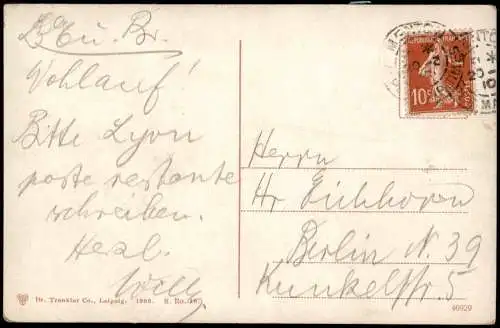 L. Eu. Br.
Wohlauf!
Bitte Lyon
poste restante
schreiben.
Herzl.
Willy
Herrn
Hr. Eichhorn
Berlin N. 39
Kunkelstr. 5
MENTO
10c
POSTES
Dr. Trenkler Co., Leipzig. 1906.
46029